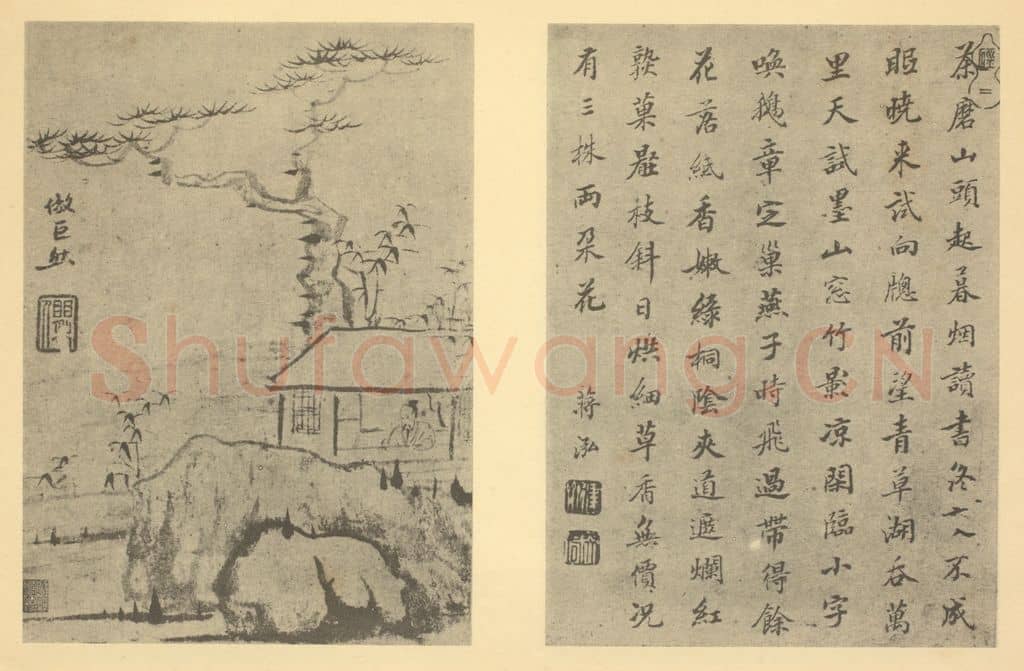 茶磨山頭起暮烟讀書不成
眠曉来試向牕前望青草湖吞萬
里天試墨山窓竹影凉閑臨小字
喚鵝章定巢燕子時飛過帶得餘
花落紙香嫩緑桐陰夾道遮爛紅
菓壓枝斜日烘細草香無價况
有三株兩朶花 蔣泓
倣巨然
Shufawang.CN